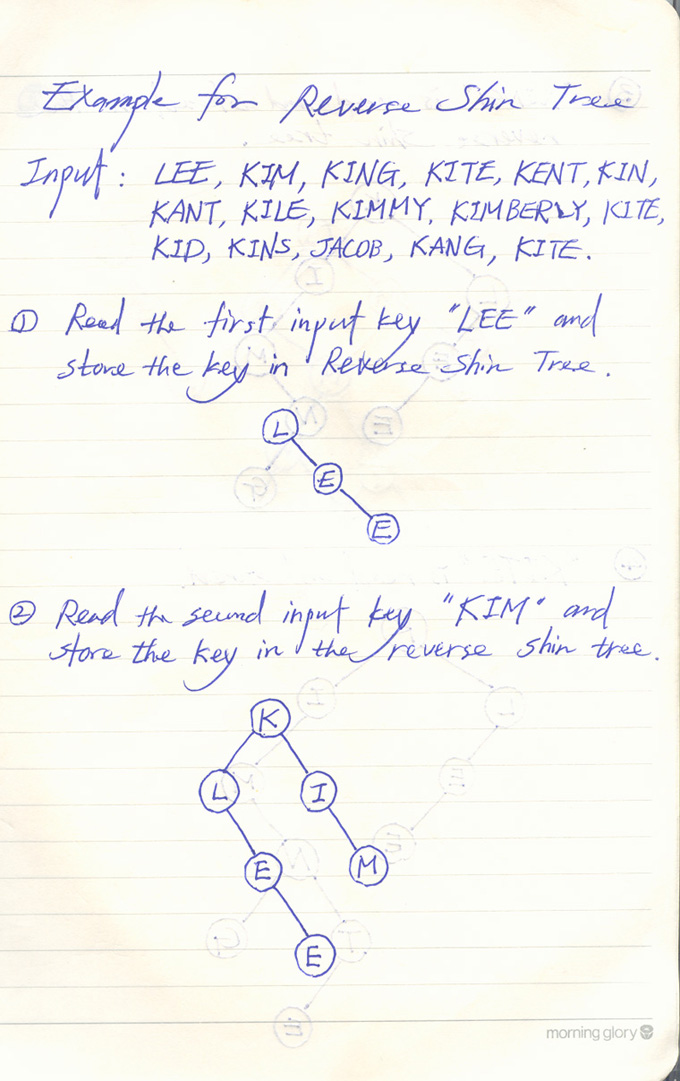 Example for Reverse Shin Tree
Input: LEE, KIM, KING, KITE, KENT, KIN,
KANT, KILE, KIMMY, KIMBERLY, KITE,
KID, KINS, JACOB, KANG, KITE.
① Read the first input key "LEE" and
store the key in Reverse Shin Tree.
L
E
E
② Read the second input key "KIM" and
store the key in the reverse shin tree.
K
L I
E M
E
morning glory